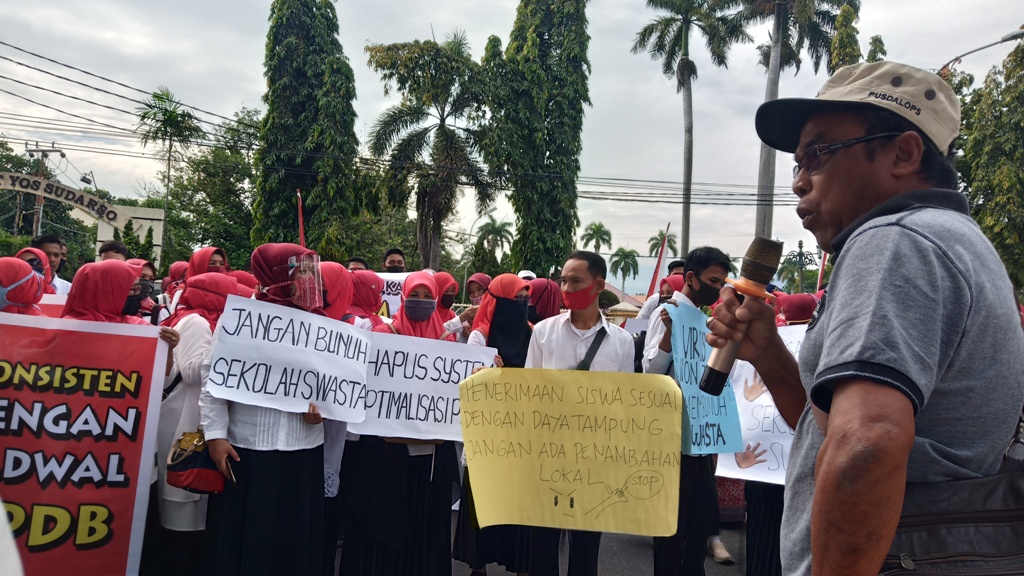 YOS SUDARSO
PUSDALOPS
KONSISTEN
DENGAN
JADWAL
PPDB
JANGAN BUNUH
SEKOLAH SWASTA
HAPUS SYST
OPTIMALISASI P
PENERIMAAN SISWA SESUAI
DENGAN DAYA TAMPUNG
JANGAN ADA PENAMBAHAN
LOKAL
STOP